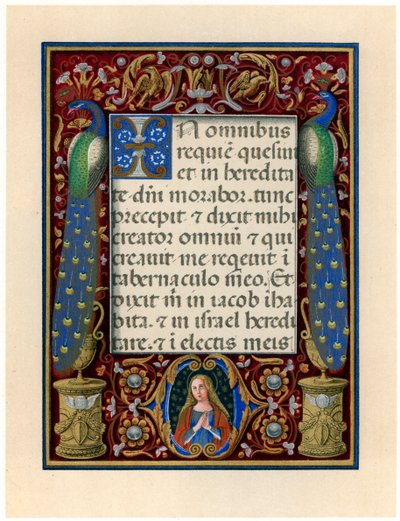 In omnibus
requiē quesiui
et in heredita
te dn̄i morabor. tunc
precepit ⁊ dixit mihi
creator omniū ⁊ qui
creauit me requuit ī
tabernaculo meo. Et
dixit m̄ in iacob iha
bita. ⁊ in israel heredi
tare. ⁊ ī electis meis